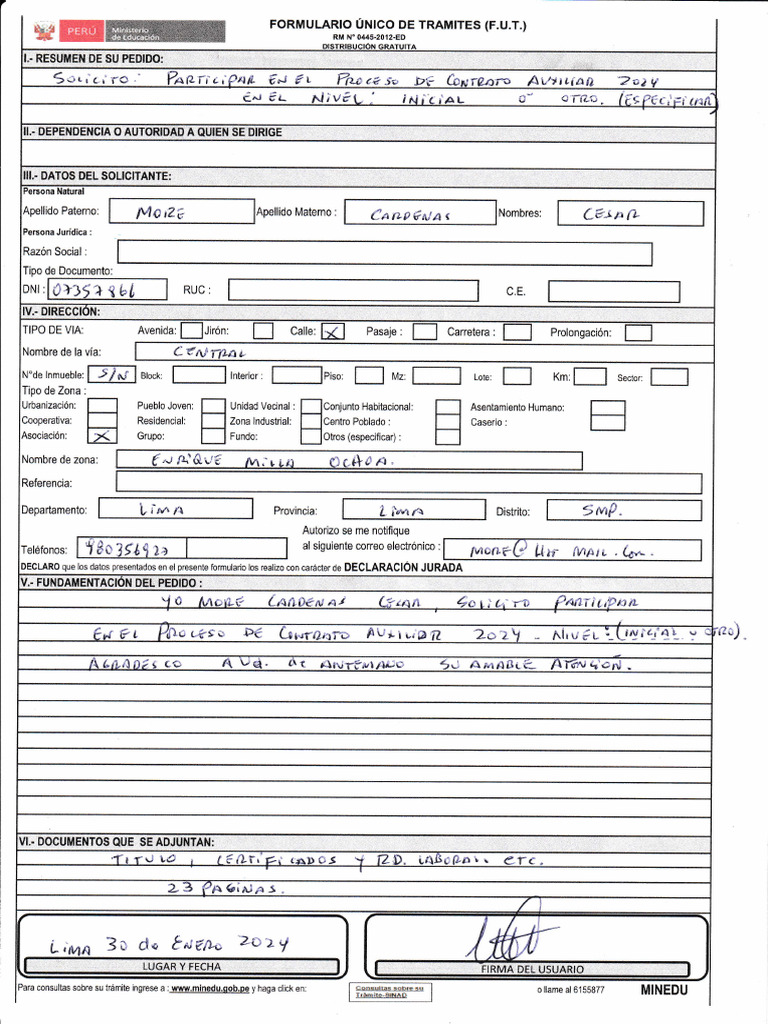 PERÚ Ministerio de Educación
FORMULARIO ÚNICO DE TRAMITES (F.U.T.)
RM Nº 0445-2012-ED
DISTRIBUCIÓN GRATUITA
I.- RESUMEN DE SU PEDIDO:
SOLICITO: PARTICIPAR EN EL PROCESO DE CONTRATO AUXILIAR 2024
EN EL NIVEL: INICIAL O OTRO. (ESPECIFICAR)
II.- DEPENDENCIA O AUTORIDAD A QUIEN SE DIRIGE
III.- DATOS DEL SOLICITANTE:
Persona Natural
Apellido Paterno: MORE Apellido Materno : CARDENAS Nombres: CESAR
Persona Jurídica :
Razón Social :
Tipo de Documento:
DNI : 07357866 RUC : C.E.
IV.- DIRECCIÓN:
TIPO DE VIA: Avenida: Jirón: Calle: X Pasaje : Carretera : Prolongación:
Nombre de la vía: CENTRAL
Nºde Inmueble: S/N Block: Interior : Piso: Mz: Lote: Km: Sector:
Tipo de Zona :
Urbanización: Pueblo Joven: Unidad Vecinal : Conjunto Habitacional: Asentamiento Humano:
Cooperativa: Residencial: Zona Industrial: Centro Poblado : Caserio :
Asociación: X Grupo: Fundo: Otros (especificar) :
Nombre de zona: ENRIQUE MILLA OCHOA.
Referencia:
Departamento: LIMA Provincia: LIMA Distrito: SMP.
Autorizo se me notifique
Teléfonos: 980356927 al siguiente correo electrónico : MORE@ MAIL.Com.
DECLARO que los datos presentados en el presente formulario los realizo con carácter de DECLARACIÓN JURADA
V.- FUNDAMENTACIÓN DEL PEDIDO :
YO MORE CARDENAS CESAR, SOLICITO PARTICIPAR
EN EL PROCESO DE CONTRATO AUXILIAR 2024 - NIVEL: (INICIAL u OTRO).
AGRADESCO A Ud. de ANTEMANO SU AMABLE ATENCIÓN.
VI.- DOCUMENTOS QUE SE ADJUNTAN:
TITULO, CERTIFICADOS Y RD. LABORAL. ETC.
23 PAGINAS.
LIMA 30 de ENERO 2024
LUGAR Y FECHA FIRMA DEL USUARIO
Para consultas sobre su trámite ingrese a : www.minedu.gob.pe y haga click en: Consultas sobre su Trámite-SINAD o llame al 6155877 MINEDU